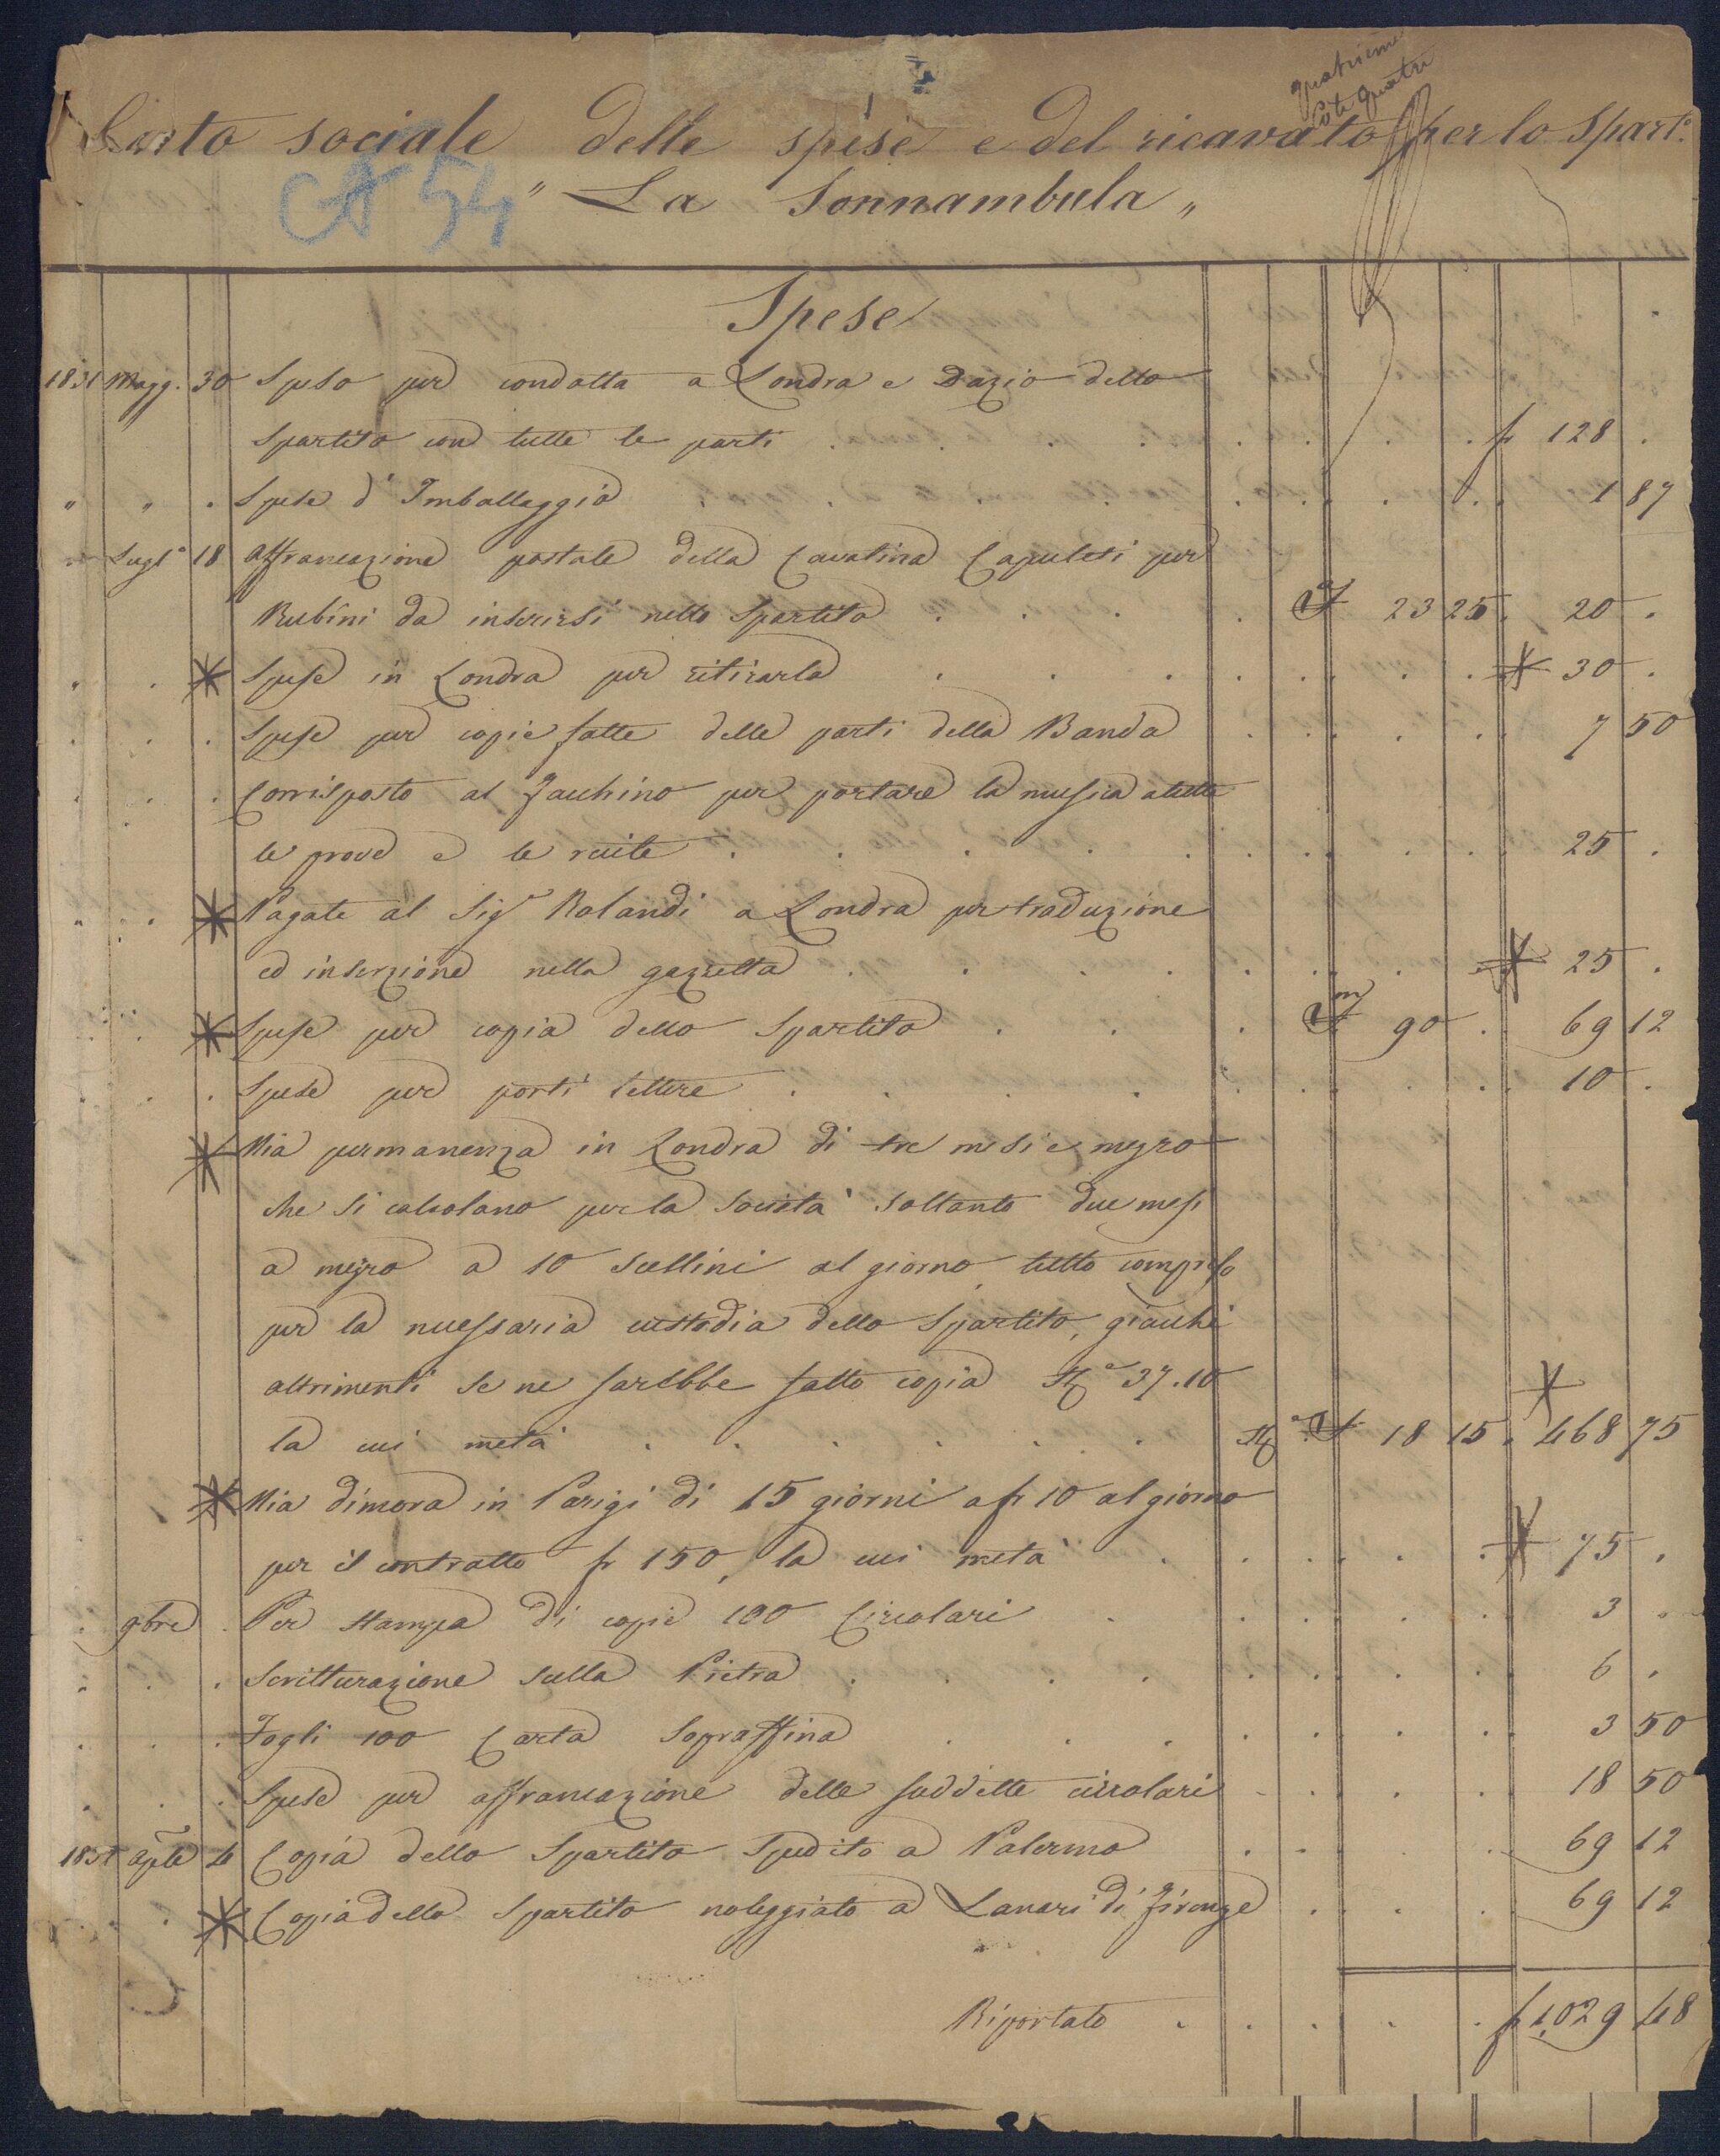 quatrième
Cote quatre
Conto sociale delle spese e del ricavato per lo Spart.o
A 54
" La Sonnambula "
Spese
1831 Magg. 30 Speso per condotta a Londra e Dazio dello
Spartito con tutte le parti . . . . fr 128 .
" " . Spese d'Imballaggio . . . . 1 87
" Lugl.o 18 Affrancazione postale della Cavatina Capuleti per
Rubini da inserirsi nello Spartito . . . 23 25 . 20 .
" . * Spese in Londra per ritirarla . . . * 30 .
. . . Spese per copie fatte delle parti della Banda . . . 7 50
. . . Corrisposto al Facchino per portare la musica a tutte
le prove e le recite . . . . 25 .
" . * Pagate al Sigr Rolandi a Londra per traduzione
ed inserzione nella gazzetta . . . . * 25 .
. . * Spese per copia dello Spartito . . . 90 . 69 12
. . . Spese per porti lettere . . . . 10 .
* Mia permanenza in Londra di tre mesi e mezzo
che si calcolano per la Società soltanto due mesi
a mezzo a 10 scellini al giorno tutto compreso
per la necessaria custodia dello Spartito, giacchè
altrimenti se ne sarebbe fatto copia St.e 37.10
la cui metà . . . . St.e 18 15 . * 468 75
* Mia dimora in Parigi di 15 giorni a fr 10 al giorno
per il contratto fr 150, la cui metà . . . . * 75 .
. 9bre . Per stampa di copie 100 Circolari . . . . 3 .
. . . Scritturazione sulla Pietra . . . . 6 .
. . . Fogli 100 Carta Sopraffina . . . . 3 50
. . . Spese per affrancazione delle suddette circolari . . . 18 50
Aple 4 Copia dello Spartito spedito a Palermo . . . 69 12
. * Copia dello Spartito noleggiato a Lanari di Firenze . . . 69 12
Riportato . . . . . fr 1,029 48